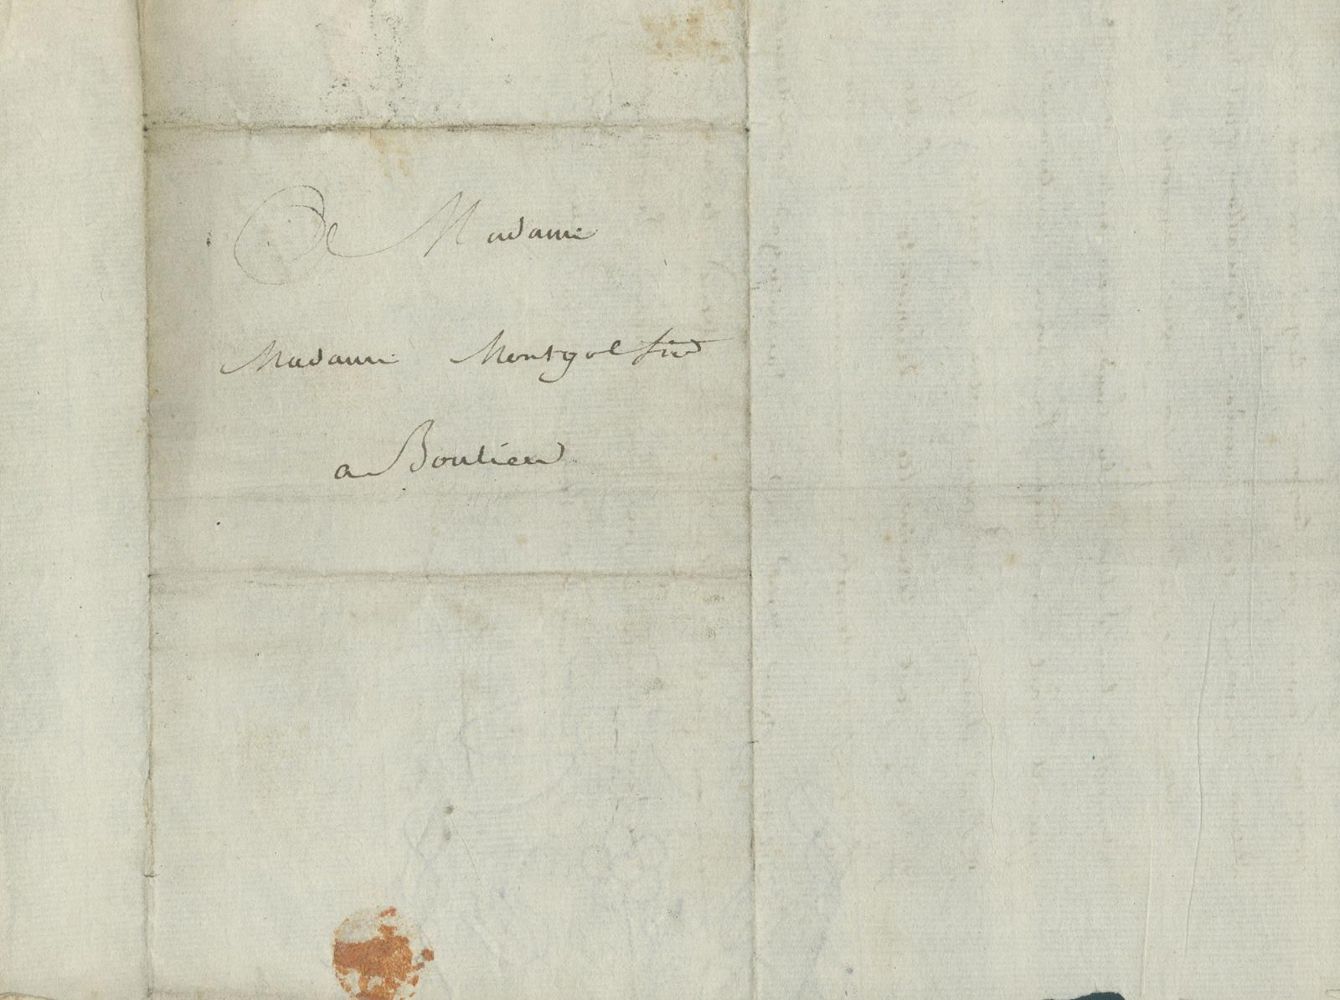 De Madame
Madame Montgolfier
a Boulieu